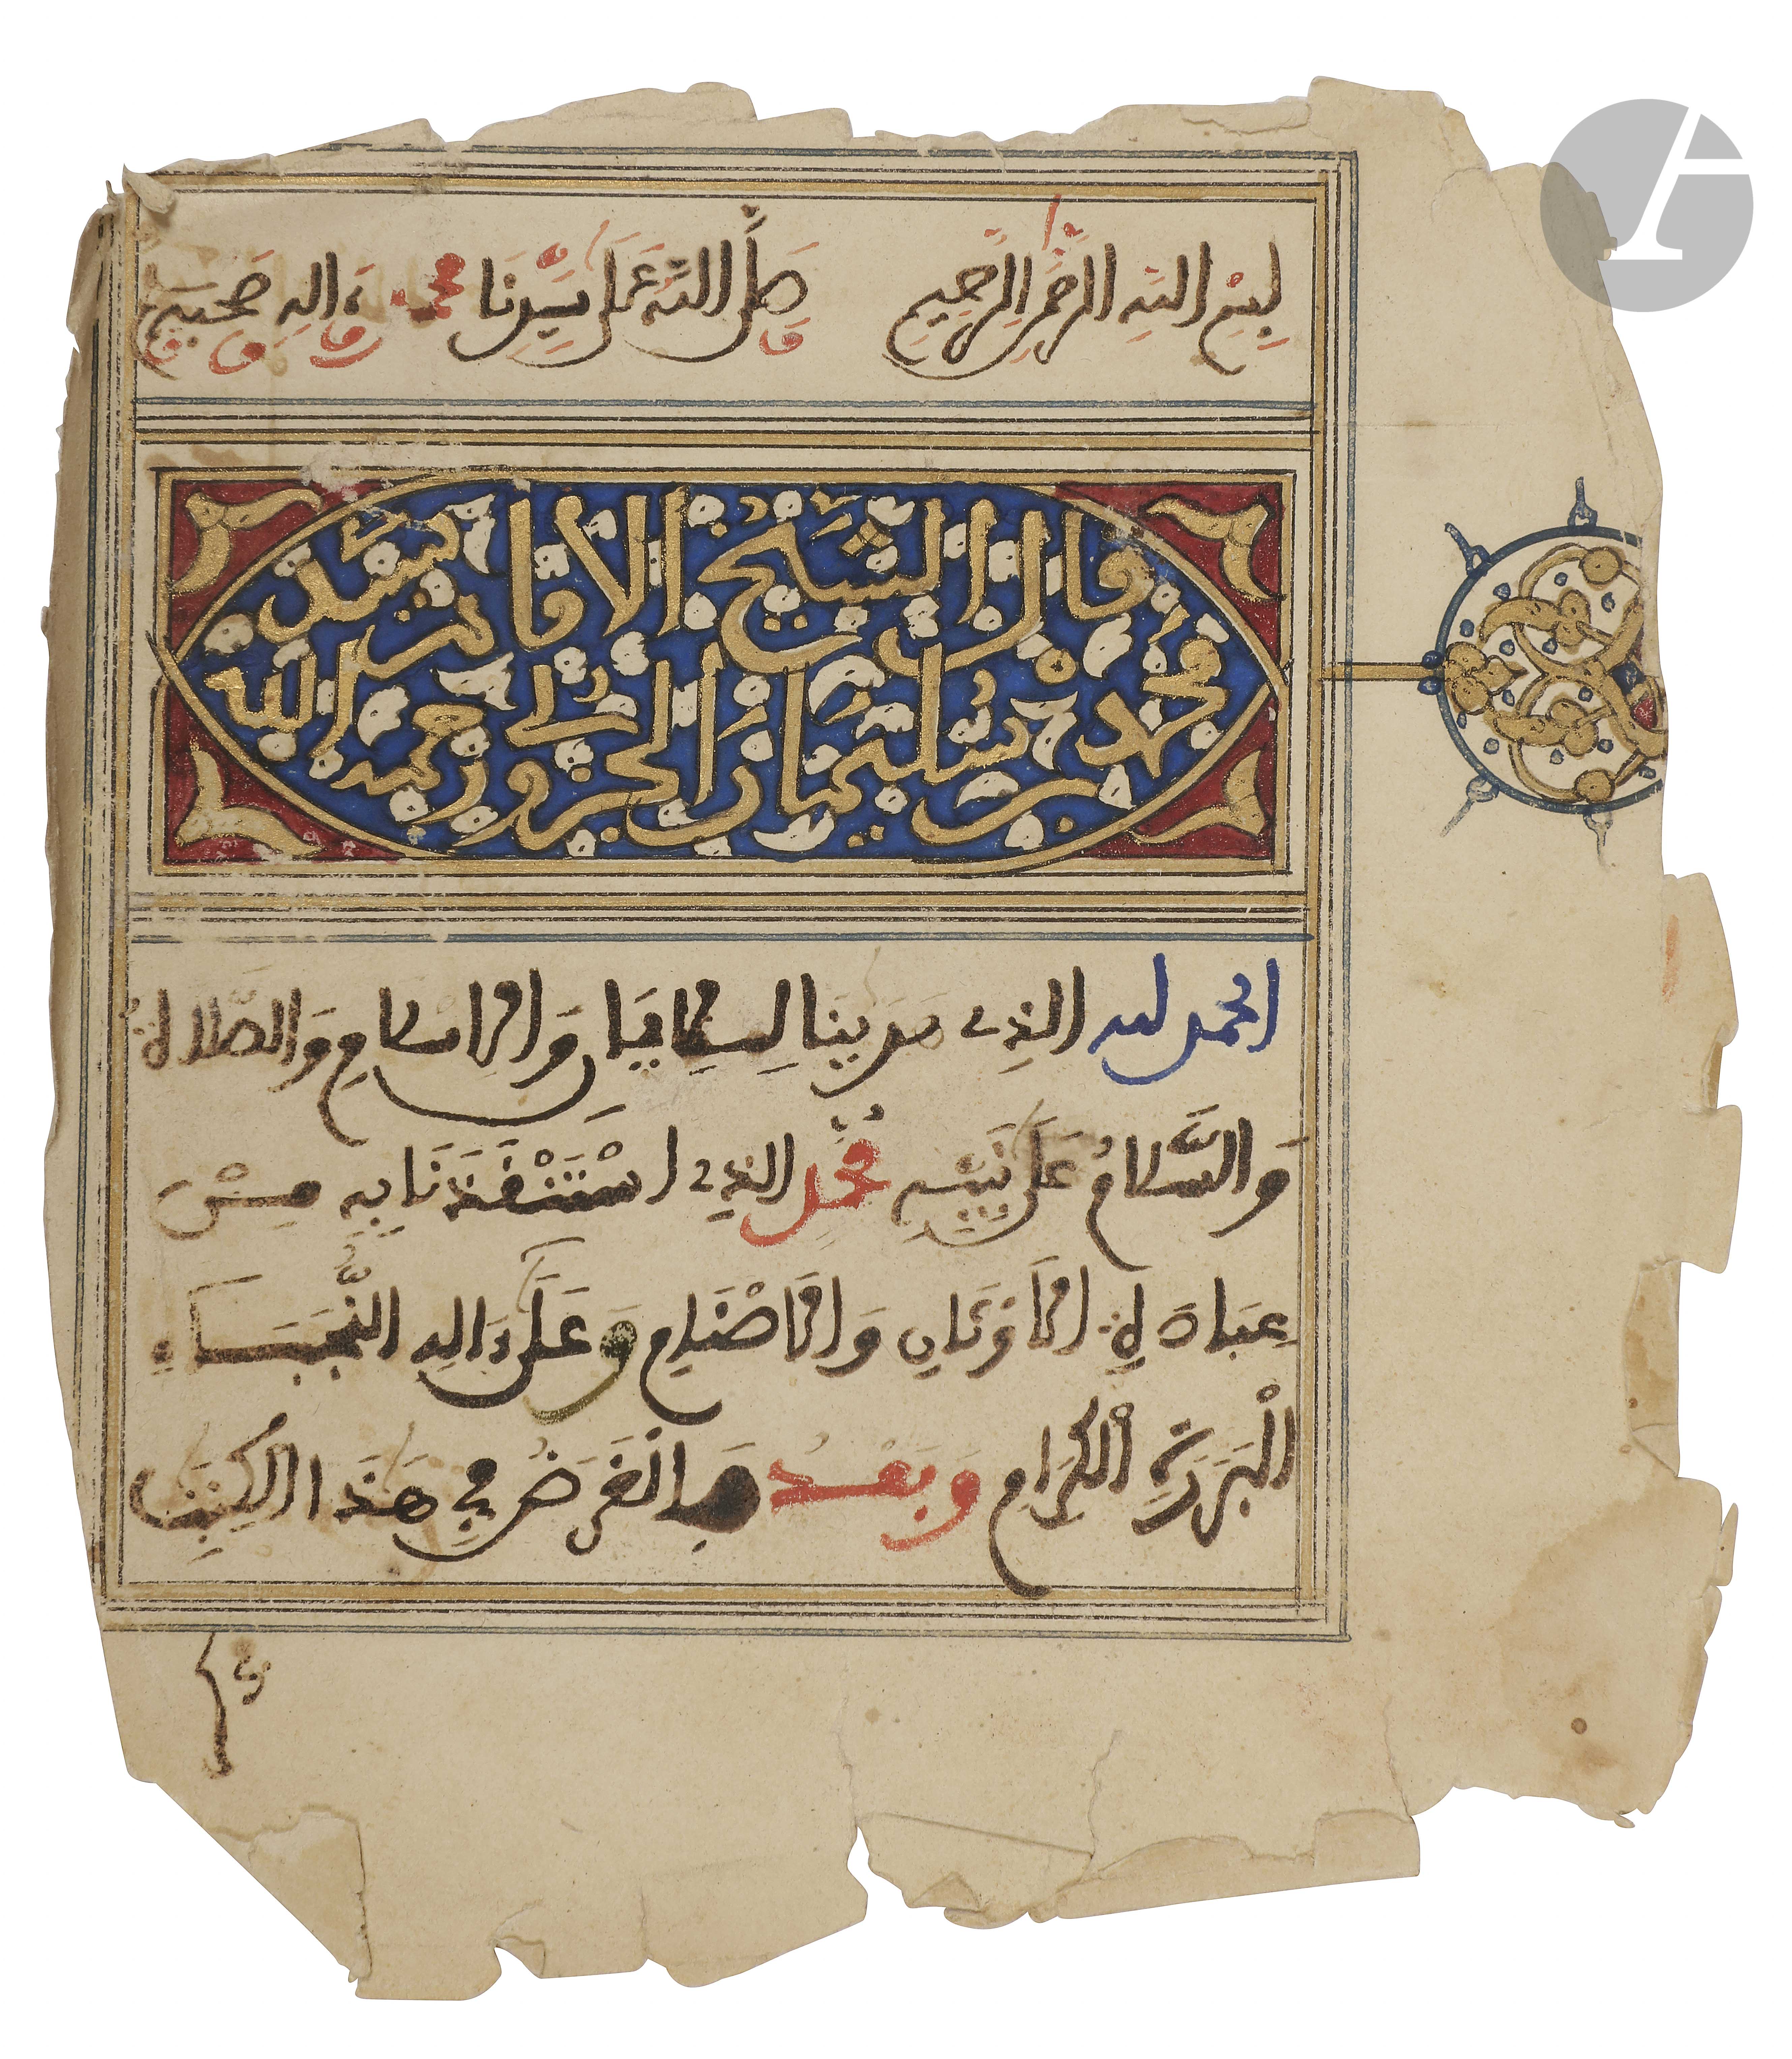 بِسْمِ اللهِ الرَّحْمَنِ الرَّحِيمِ وَصَلَّى اللهُ عَلَى سَيِّدِنَا محمد وَءَالِهِ وَصَحْبِهِ
قال الشيخ الامام
محمد بن سليمان الجزولي رحمه الله
الحمد لله الذِي هَدَينَا لِلايمَانِ وَالاِسْلَامِ وَالصَّلَاةُ
وَالسَّلَامُ عَلَى نَبِيِّهِ مُحَمَّدٍ الذِي اسْتَنْقَذَنَا بِهِ مِنْ
عِبَادَةِ الاَوْثَانِ وَالاَصْنَامِ وَعَلَى ءَالِهِ النُّجَبَاءِ
الْبَرَرَةِ الْكِرَامِ وَبَعْدُ فَالْغَرَضُ فِي هَذَا الكِتَبِ